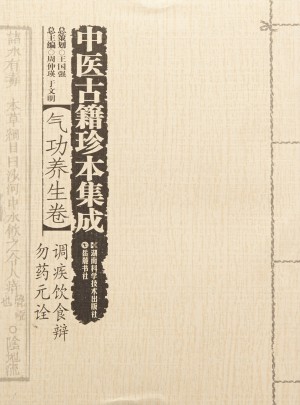 中医古籍珍本集成
总策划◎王国强
总主编◎周仲瑛 于文明
【气功养生卷】
调疾饮食辩
勿药元诠
湖南科学技术出版社
岳麓书社